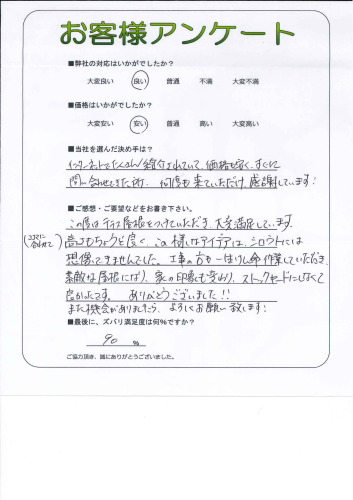 お客様アンケート
■弊社の対応はいかがでしたか?
大変良い 良い 普通 不満 大変不満
■価格はいかがでしたか?
大変安い 安い 普通 高い 大変高い
■当社を選んだ決め手は?
インターネットでたくさん紹介されていて、価格も安く、すぐに
問い合わせをした所、何度も来ていただけ、感謝しています!
■ご感想・ご要望などをお書き下さい。
この度はテラス屋根をつけていただき、大変満足しています。
(コマに合わせて)
高さもちょうど良く、この様なアイデアは、シロウトには
想像できませんでした。工事の方も一生けん命作業していただき、
素敵な屋根になり、家の印象も変わり、ストックヤードにしなくて
良かったです。ありがとうございました!!
また機会がありましたら、よろしくお願い致します!
■最後に、ズバリ満足度は何%ですか?
90 %
ご協力頂き、誠にありがとうございました。